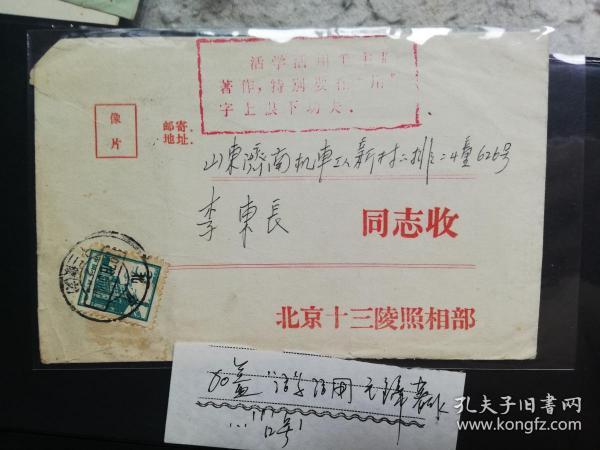 活学活用毛主席
著作,特别要在“用”
字上狠下功夫.
像
片
邮寄
地址.
山東濟南机車工人新村二排
李東長
同志收
北京十三陵照相部
加盖“活学活用毛
孔夫子旧书网
www.kongfz.com